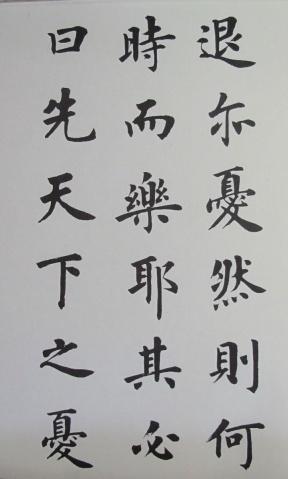 退亦憂然則何
時而樂耶其必
曰先天下之憂